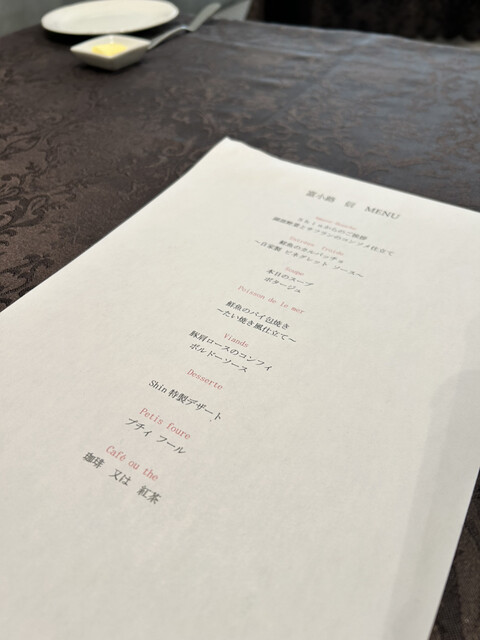 霞小路 宸 MENU
shinからのご挨拶
Cuisine froide
鮮魚のカルパッチョ
~自家製 ビネグレット ソース~
Soupe
本日のスープ
ポタージュ
Poisson de le mer
鮮魚のパイ包焼き
~たい焼き風仕立て~
Viands
豚肩ロースのコンフィ
ボルドーソース
Desserte
Shin 特製デザート
Petis foure
プティ フール
Café ou the
珈琲 又は 紅茶